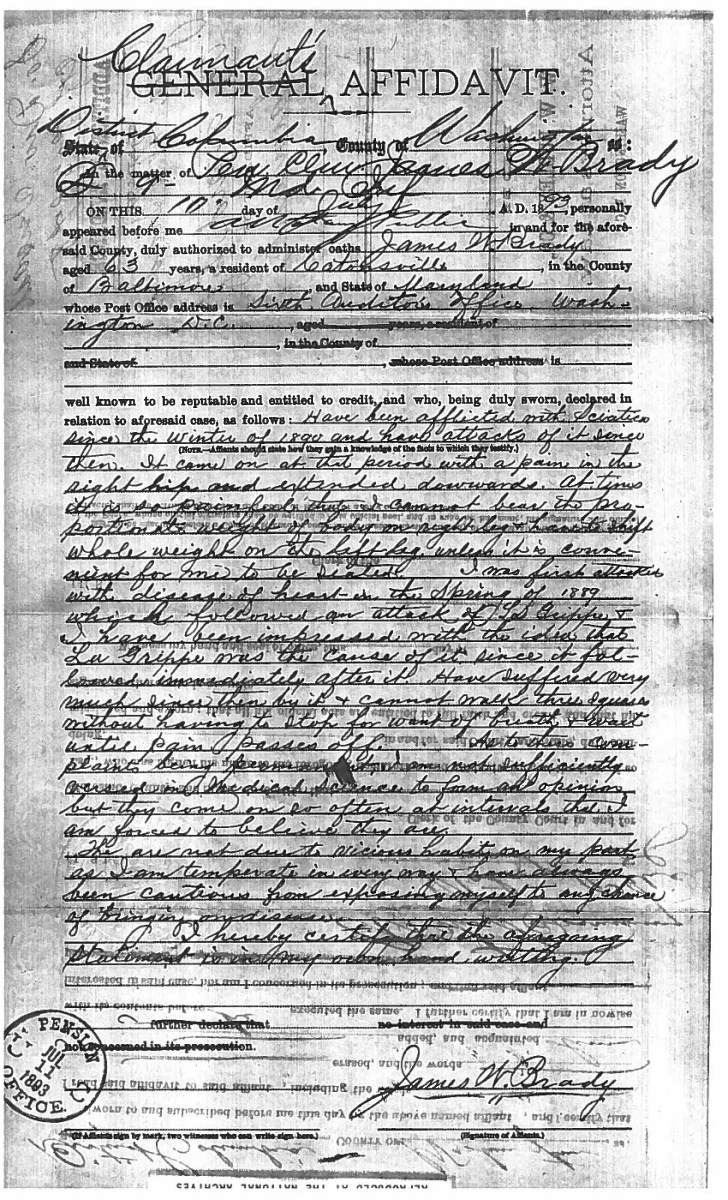 Claimant's
GENERAL AFFIDAVIT.
District of Columbia County of Washington ss:
In the matter of Pen. Claim James W. Brady
Md.
ON THIS 10" day of July, A. D. 1893, personally
appeared before me a Notary Public in and for the afore-
said County, duly authorized to administer oaths James W. Brady
aged 63 years, a resident of Catonsville, in the County
of Baltimore, and State of Maryland
whose Post Office address is Sixth Auditor's Office Wash-
ington D.C., aged years, a resident of
, in the County of
and State of , whose Post Office address is
well known to be reputable and entitled to credit, and who, being duly sworn, declared in
relation to aforesaid case, as follows: Have been afflicted with Sciatica
since the Winter of 1890 and have attacks of it since
(NOTE.—Affiants should state how they gain a knowledge of the facts to which they testify.)
then. It came on at that period with a pain in the
right hip and extended downwards. At times
it is so painful that I cannot bear the pro-
portionate weight of body on right leg & have to shift
whole weight on the left leg unless it is conve-
nient for me to be seated. I was first attacked
with disease of heart in the Spring of 1889
which followed an attack of La Grippe &
I have been impressed with the idea that
La Grippe was the cause of it since it fol-
lowed immediately after it. Have suffered very
much since then by it & cannot walk three squares
without having to stop for want of breath & wait
until pain passes off. As to these com-
plaints being permanent I am not sufficiently
versed in Medical Science to form an opinion
but they come on so often at intervals that I
am forced to believe they are.
The are not due to vicious habit on my part
as I am temperate in every way & have always
been cautious from exposing myself to any chance
of bringing on disease.
I hereby certify that the foregoing
statement is in my own hand writing.
further declare that no interest in said case and
not concerned in its prosecution.
PENSION OFFICE.
JUL 11 1893
James W. Brady
(If Affiants sign by mark, two witnesses who can write sign here.) (Signature of Affiants.)